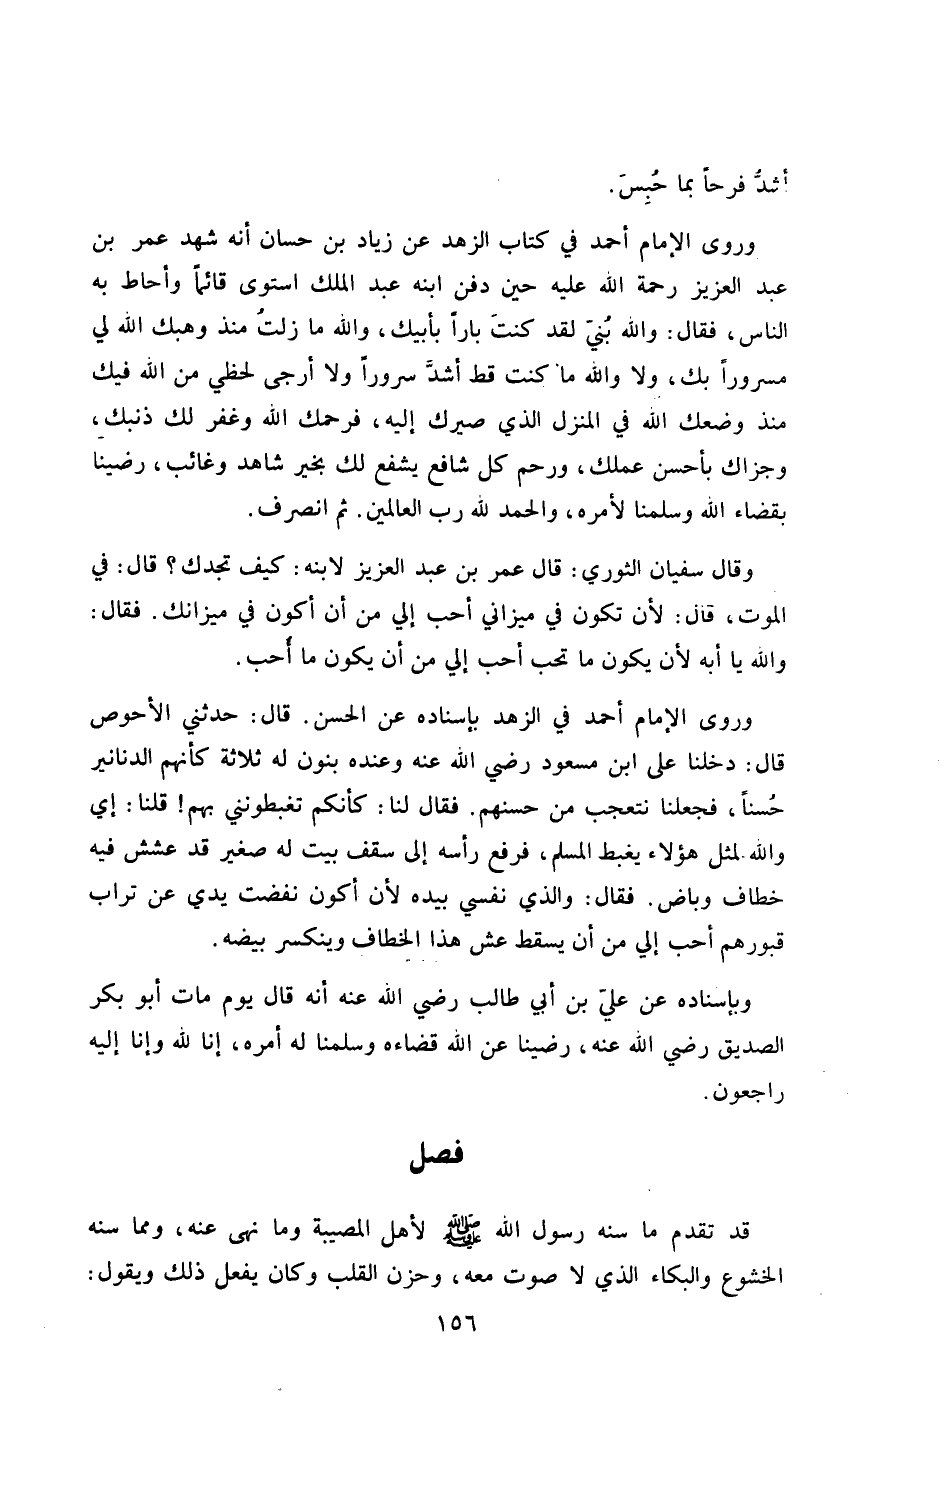 أشدُّ فرحاً بما حُبِسَ.
وروى الإمام أحمد في كتاب الزهد عن زياد بن حسان أنه شهد عمر بن
عبد العزيز رحمة الله عليه حين دفن ابنه عبد الملك استوى قائماً وأحاط به
الناس، فقال: والله بُنيّ لقد كنتَ باراً بأبيك، والله ما زلتُ منذ وهبك الله لي
مسروراً بك، ولا والله ما كنت قط أشدَّ سروراً ولا أرجى لحظي من الله فيك
منذ وضعك الله في المنزل الذي صيرك إليه، فرحمك الله وغفر لك ذنبك،
وجزاك بأحسن عملك، ورحم كل شافع يشفع لك بخير شاهد وغائب، رضينا
بقضاء الله وسلمنا لأمره، والحمد لله رب العالمين. ثم انصرف.
وقال سفيان الثوري: قال عمر بن عبد العزيز لابنه: كيف تجدك؟ قال: في
الموت، قال: لأن تكون في ميزاني أحب إلي من أن أكون في ميزانك. فقال:
والله يا أبه لأن يكون ما تحب أحب إلي من أن يكون ما أُحب.
وروى الإمام أحمد في الزهد بإسناده عن الحسن. قال: حدثني الأحوص
قال: دخلنا على ابن مسعود رضي الله عنه وعنده بنون له ثلاثة كأنهم الدنانير
حُسناً، فجعلنا نتعجب من حسنهم. فقال لنا: كأنكم تغبطونني بهم! قلنا: إي
والله لمثل هؤلاء يغبط المسلم، فرفع رأسه إلى سقف بيت له صغير قد عشش فيه
خطاف وباض. فقال: والذي نفسي بيده لأن أكون نفضت يدي عن تراب
قبورهم أحب إلي من أن يسقط عش هذا الخطاف وينكسر بيضه.
وبإسناده عن عليّ بن أبي طالب رضي الله عنه أنه قال يوم مات أبو بكر
الصديق رضي الله عنه، رضينا عن الله قضاءه وسلمنا له أمره، إنا لله وإنا إليه
راجعون.
فصل
قد تقدم ما سنه رسول الله ﷺ لأهل المصيبة وما نهى عنه، ومما سنه
الخشوع والبكاء الذي لا صوت معه، وحزن القلب وكان يفعل ذلك ويقول:
١٥٦